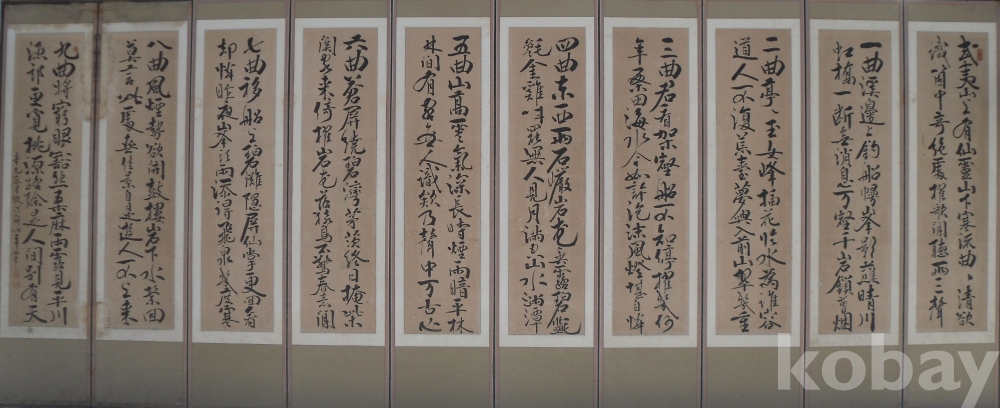 武夷山上有仙靈山下寒流曲々清欲
識箇中奇絶處櫂歌閑聽兩三聲
一曲溪邊上釣船幔峯影蘸晴川
虹橋一斷無消息万壑千岩鎖暮烟
二曲亭々玉女峰插花臨水爲誰容
道人不復荒臺夢興入前山翠幾重
三曲君看架壑船不知停櫂幾何
年桑田海水今如許泡沫風燈堪自憐
四曲東西兩石巖岩花垂露碧㲯
毿金雞叫罷無人見月滿空山水滿潭
五曲山高雲氣深長時煙雨暗平林
林間有客無人識欸乃聲中万古心
六曲蒼屏繞碧灣茅茨終日掩柴
關客來倚櫂岩花落猿鳥不驚春意閑
七曲移船上碧灘隱屏仙掌更回看
却憐昨夜峯頭雨添得飛泉幾度寒
八曲風煙勢欲開鼓樓岩下水縈回
莫言此處無佳景自是遊人不上來
九曲將窮眼豁然桑麻雨露見平川
漁郎更覓桃源路除是人間別有天
kobay